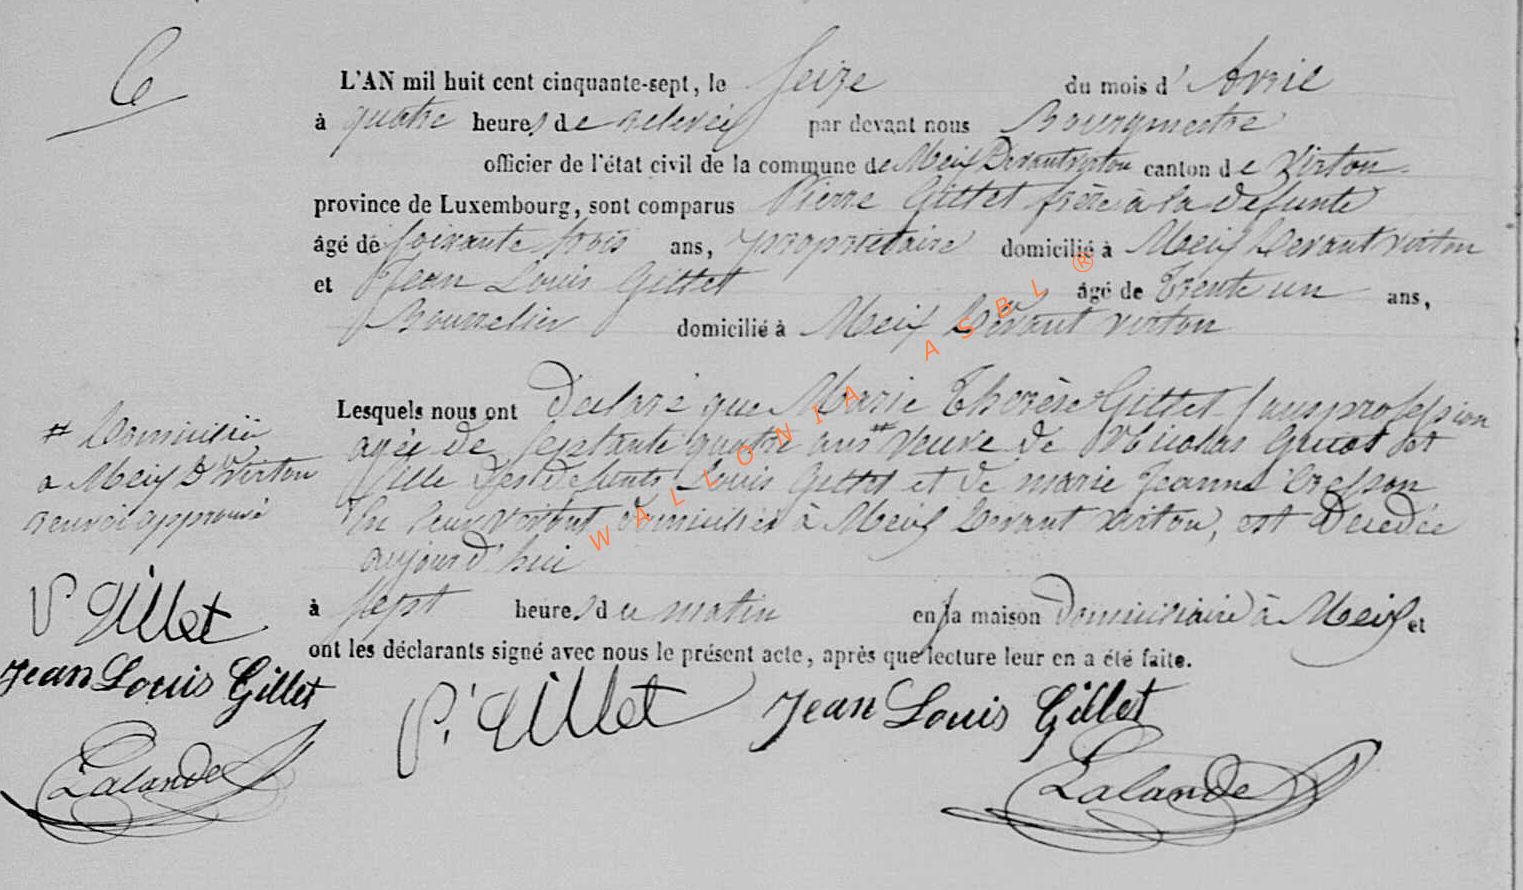 6
L'AN mil huit cent cinquante-sept, le Seize du mois d' Avril
à quatre heures de relevée par devant nous Bourgmestre
officier de l'état civil de la commune de Meix Devant virton canton de Virton
province de Luxembourg, sont comparus Pierre Gillet frère à la défunte
âgé de soixante trois ans, propriétaire domicilié à Meix devant virton
et Jean Louis Gillet âgé de Trente un ans,
Bourrelier domicilié à Meix Devant virton
Lesquels nous ont déclaré que Marie Thérèse Gillet sans profession
agée de septante quatre ans # veuve de Nicolas
fille des défunts Louis Gillet et de marie Jeanne Cresson
En leur vivant domiciliés à Meix devant virton, est Décédée
aujourd'hui
à sept heures du matin en sa maison Domiciliaire à Meix et
ont les déclarants signé avec nous le présent acte, après que lecture leur en a été faite.
# Domiciliée
a Meix D Virton
renvoi approuvé
P. Gillet
Jean Louis Gillet
Lalande
P. Gillet Jean Louis Gillet
Lalande
WALLONIA ASBL ®